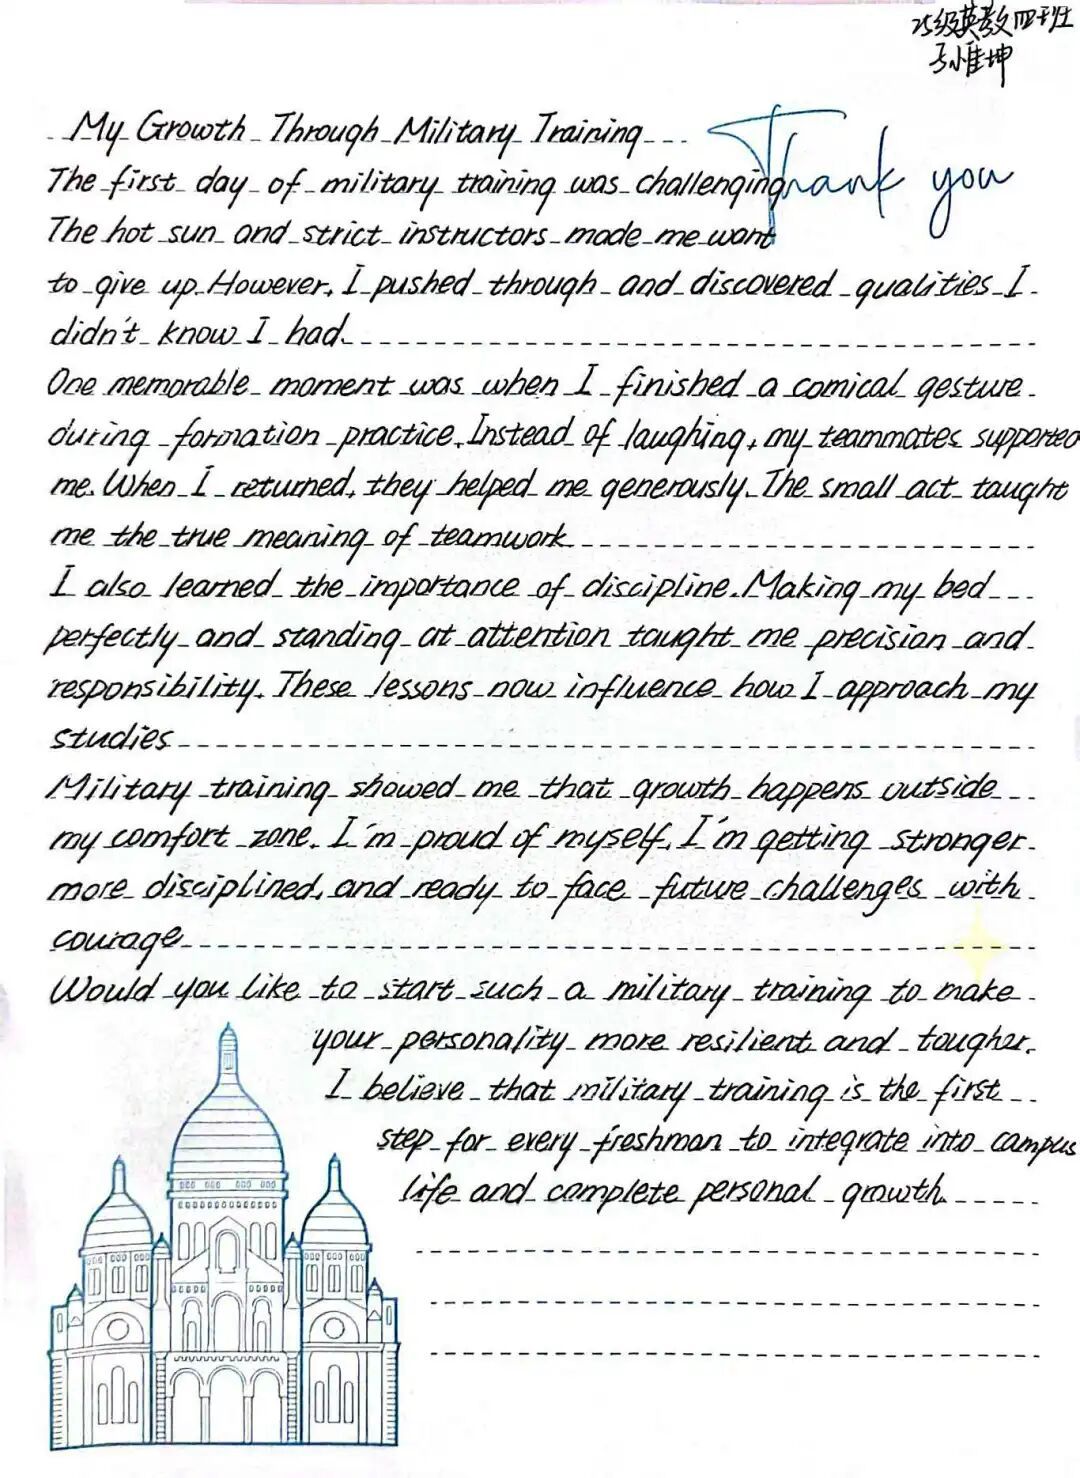 25级英教四班
孙惟坤
My Growth Through Military Training
Thank you
The first day of military training was challenging
The hot sun and strict instructors made me want
to give up. However, I pushed through and discovered qualities I
didn't know I had.
One memorable moment was when I finished a comical gesture
during formation practice. Instead of laughing, my teammates supported
me. When I returned, they helped me generously. The small act taught
me the true meaning of teamwork
I also learned the importance of discipline. Making my bed
perfectly and standing at attention taught me precision and
responsibility. These lessons now influence how I approach my
studies
Military training showed me that growth happens outside
my comfort zone. I'm proud of myself, I'm getting stronger
more disciplined, and ready to face future challenges with
courage
Would you like to start such a military training to make
your personality more resilient and tougher.
I believe that military training is the first
step for every freshman to integrate into campus
life and complete personal growth.